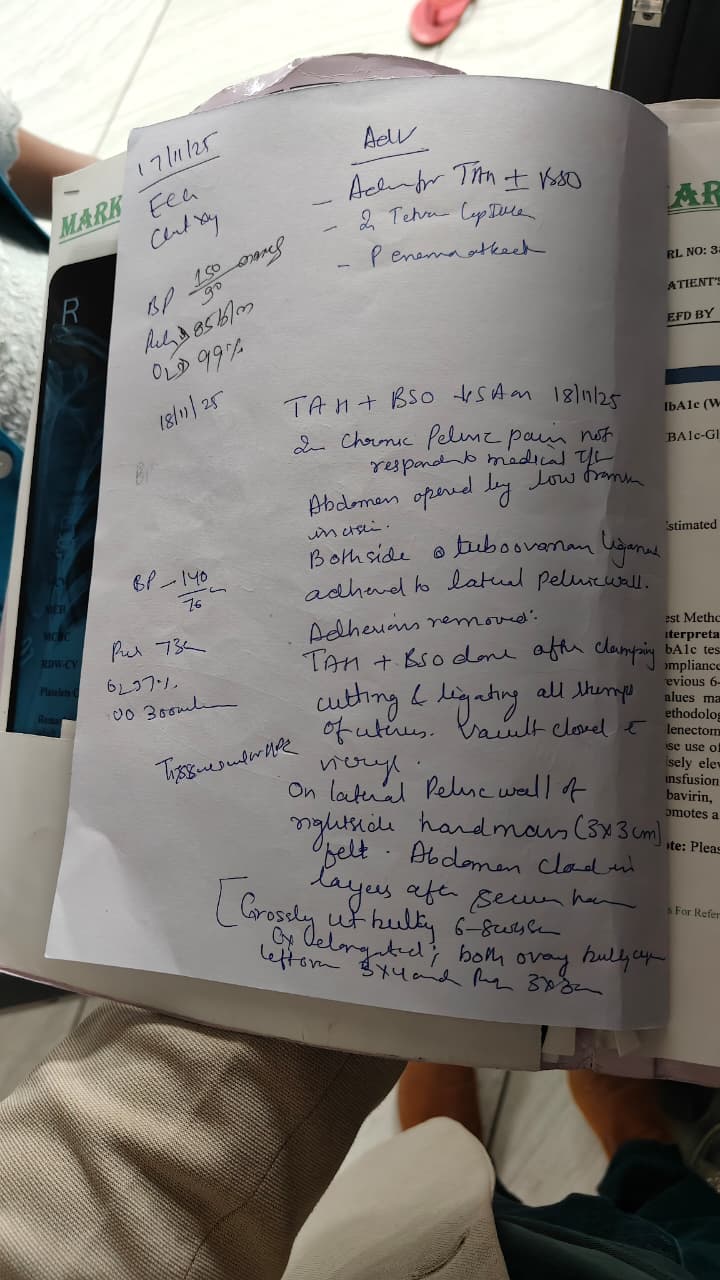 17/11/25
ECG
Chest Xray
BP 150/90 mmHg
Pulse 85b/m
99%
Adv
- Adm for TAH ± BSO
-
- P enema at
18/11/25
TAH + BSO SA on 18/11/25
Chronic Pelvic pain not
respond to medical T/t
Abdomen opened by low transv
incisi.
Both side tuboovarian ligament
adhered to lateral Pelvic wall.
Adhesions removed.
TAH + BSO done after clamping
cutting & ligating all stumps
of uterus. Vault closed c̄
vicryl.
On lateral Pelvic wall of
right side hard mass (3x3cm)
felt. Abdomen closed in
layers after
[Grossly ut bulky 6-8 week
Cx elongated; both ovary bulky
left 3x4 and 3x3cm
BP - 140/76
Pul 73
97%
UO 300ml
Tissue sent for HPE
MARK
R
MCV
MCH
MCHC
RDW-CV
AR
RL NO: 3
ATIENT'S
EFD BY
bA1c (W
BA1c-Gl
stimated
est Metho
terpreta
bA1c tes
mpliance
evious 6-
alues ma
ethodolog
lenectom
se use of
sely elev
nsfusion
bavirin,
omotes a
te: Pleas
s For Refer